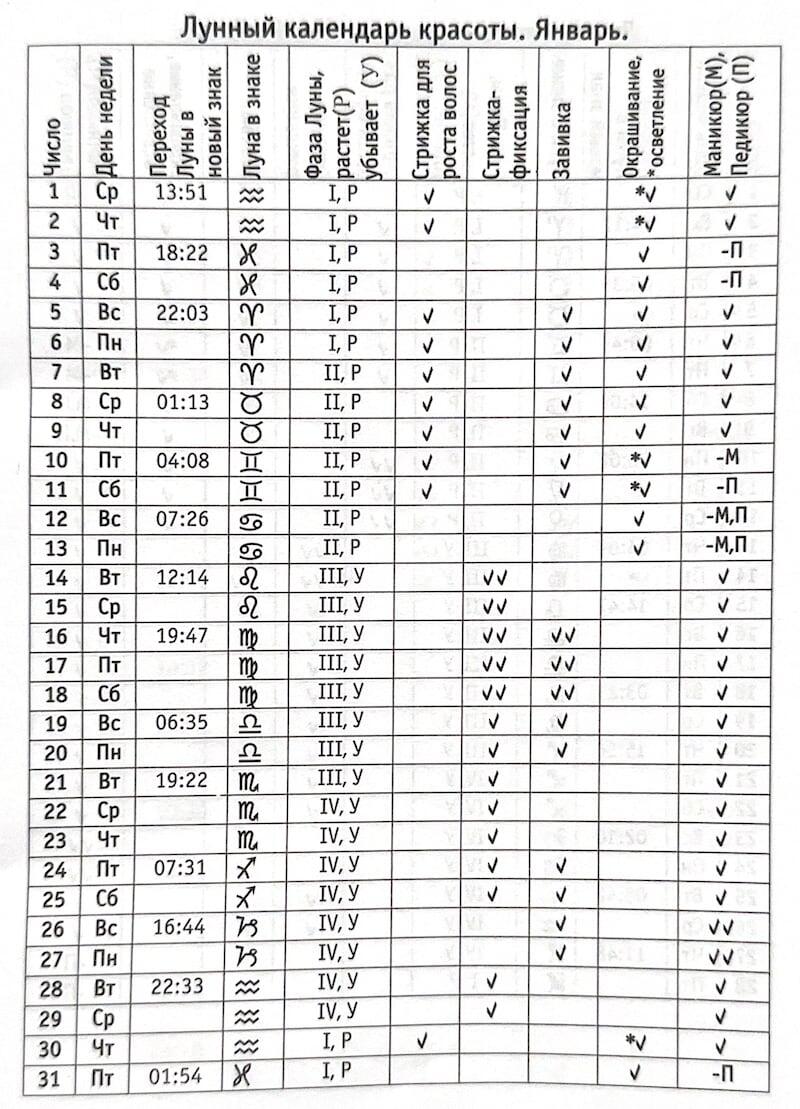 Лунный календарь красоты. Январь.
Число День недели Переход Луны в новый знак Луна в знаке Фаза Луны, растет(Р) убывает (У) Стрижка для роста волос Стрижка-фиксация Завивка Окрашивание, *осветление Маникюр(М), Педикюр (П)
1 Ср 13:51 ♒ I, Р ✓ *✓ ✓
2 Чт ♒ I, Р ✓ *✓ ✓
3 Пт 18:22 ♓ I, Р ✓ -П
4 Сб ♓ I, Р ✓ -П
5 Вс 22:03 ♈ I, Р ✓ ✓ ✓ ✓
6 Пн ♈ I, Р ✓ ✓ ✓ ✓
7 Вт ♈ II, Р ✓ ✓ ✓ ✓
8 Ср 01:13 ♉ II, Р ✓ ✓ ✓ ✓
9 Чт ♉ II, Р ✓ ✓ ✓ ✓
10 Пт 04:08 ♊ II, Р ✓ ✓ *✓ -М
11 Сб ♊ II, Р ✓ ✓ *✓ -П
12 Вс 07:26 ♋ II, Р ✓ -М,П
13 Пн ♋ II, Р ✓ -М,П
14 Вт 12:14 ♌ III, У ✓✓ ✓
15 Ср ♌ III, У ✓✓ ✓
16 Чт 19:47 ♍ III, У ✓✓ ✓✓ ✓
17 Пт ♍ III, У ✓✓ ✓✓ ✓
18 Сб ♍ III, У ✓✓ ✓✓ ✓
19 Вс 06:35 ♎ III, У ✓ ✓ ✓
20 Пн ♎ III, У ✓ ✓ ✓
21 Вт 19:22 ♏ III, У ✓ ✓
22 Ср ♏ IV, У ✓ ✓
23 Чт ♏ IV, У ✓ ✓
24 Пт 07:31 ♐ IV, У ✓ ✓ ✓
25 Сб ♐ IV, У ✓ ✓ ✓
26 Вс 16:44 ♑ IV, У ✓ ✓✓
27 Пн ♑ IV, У ✓ ✓✓
28 Вт 22:33 ♒ IV, У ✓ ✓
29 Ср ♒ IV, У ✓ ✓
30 Чт ♒ I, Р ✓ *✓ ✓
31 Пт 01:54 ♓ I, Р ✓ -П